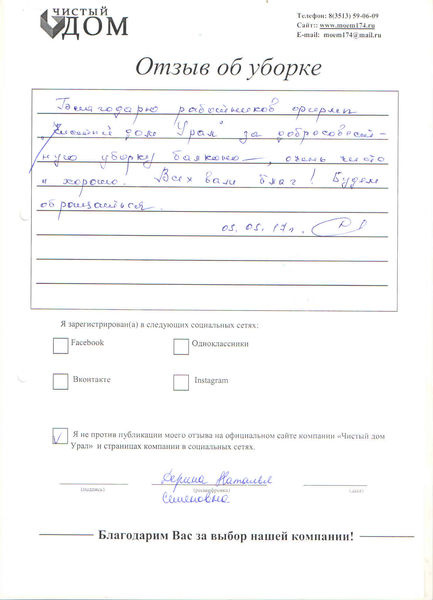 ЧИСТЫЙ
ДОМ
Телефон: 8(3513) 59-06-09
Сайт:: www.moem174.ru
E-mail: moem174@mail.ru
Отзыв об уборке
Благодарю работников фирмы
"Чистый дом Урал" за добросовест-
ную уборку балкона, очень чисто
и хорошо. Всех вам благ! Будем
обращаться.
03.05.17г.
Я зарегистрирован(а) в следующих социальных сетях:
Facebook
Одноклассники
Вконтакте
Instagram
Я не против публикации моего отзыва на официальном сайте компании «Чистый дом
Урал» и страницах компании в социальных сетях.
Наталья
(подпись) (расшифровка) (дата)
Семеновна
Благодарим Вас за выбор нашей компании!